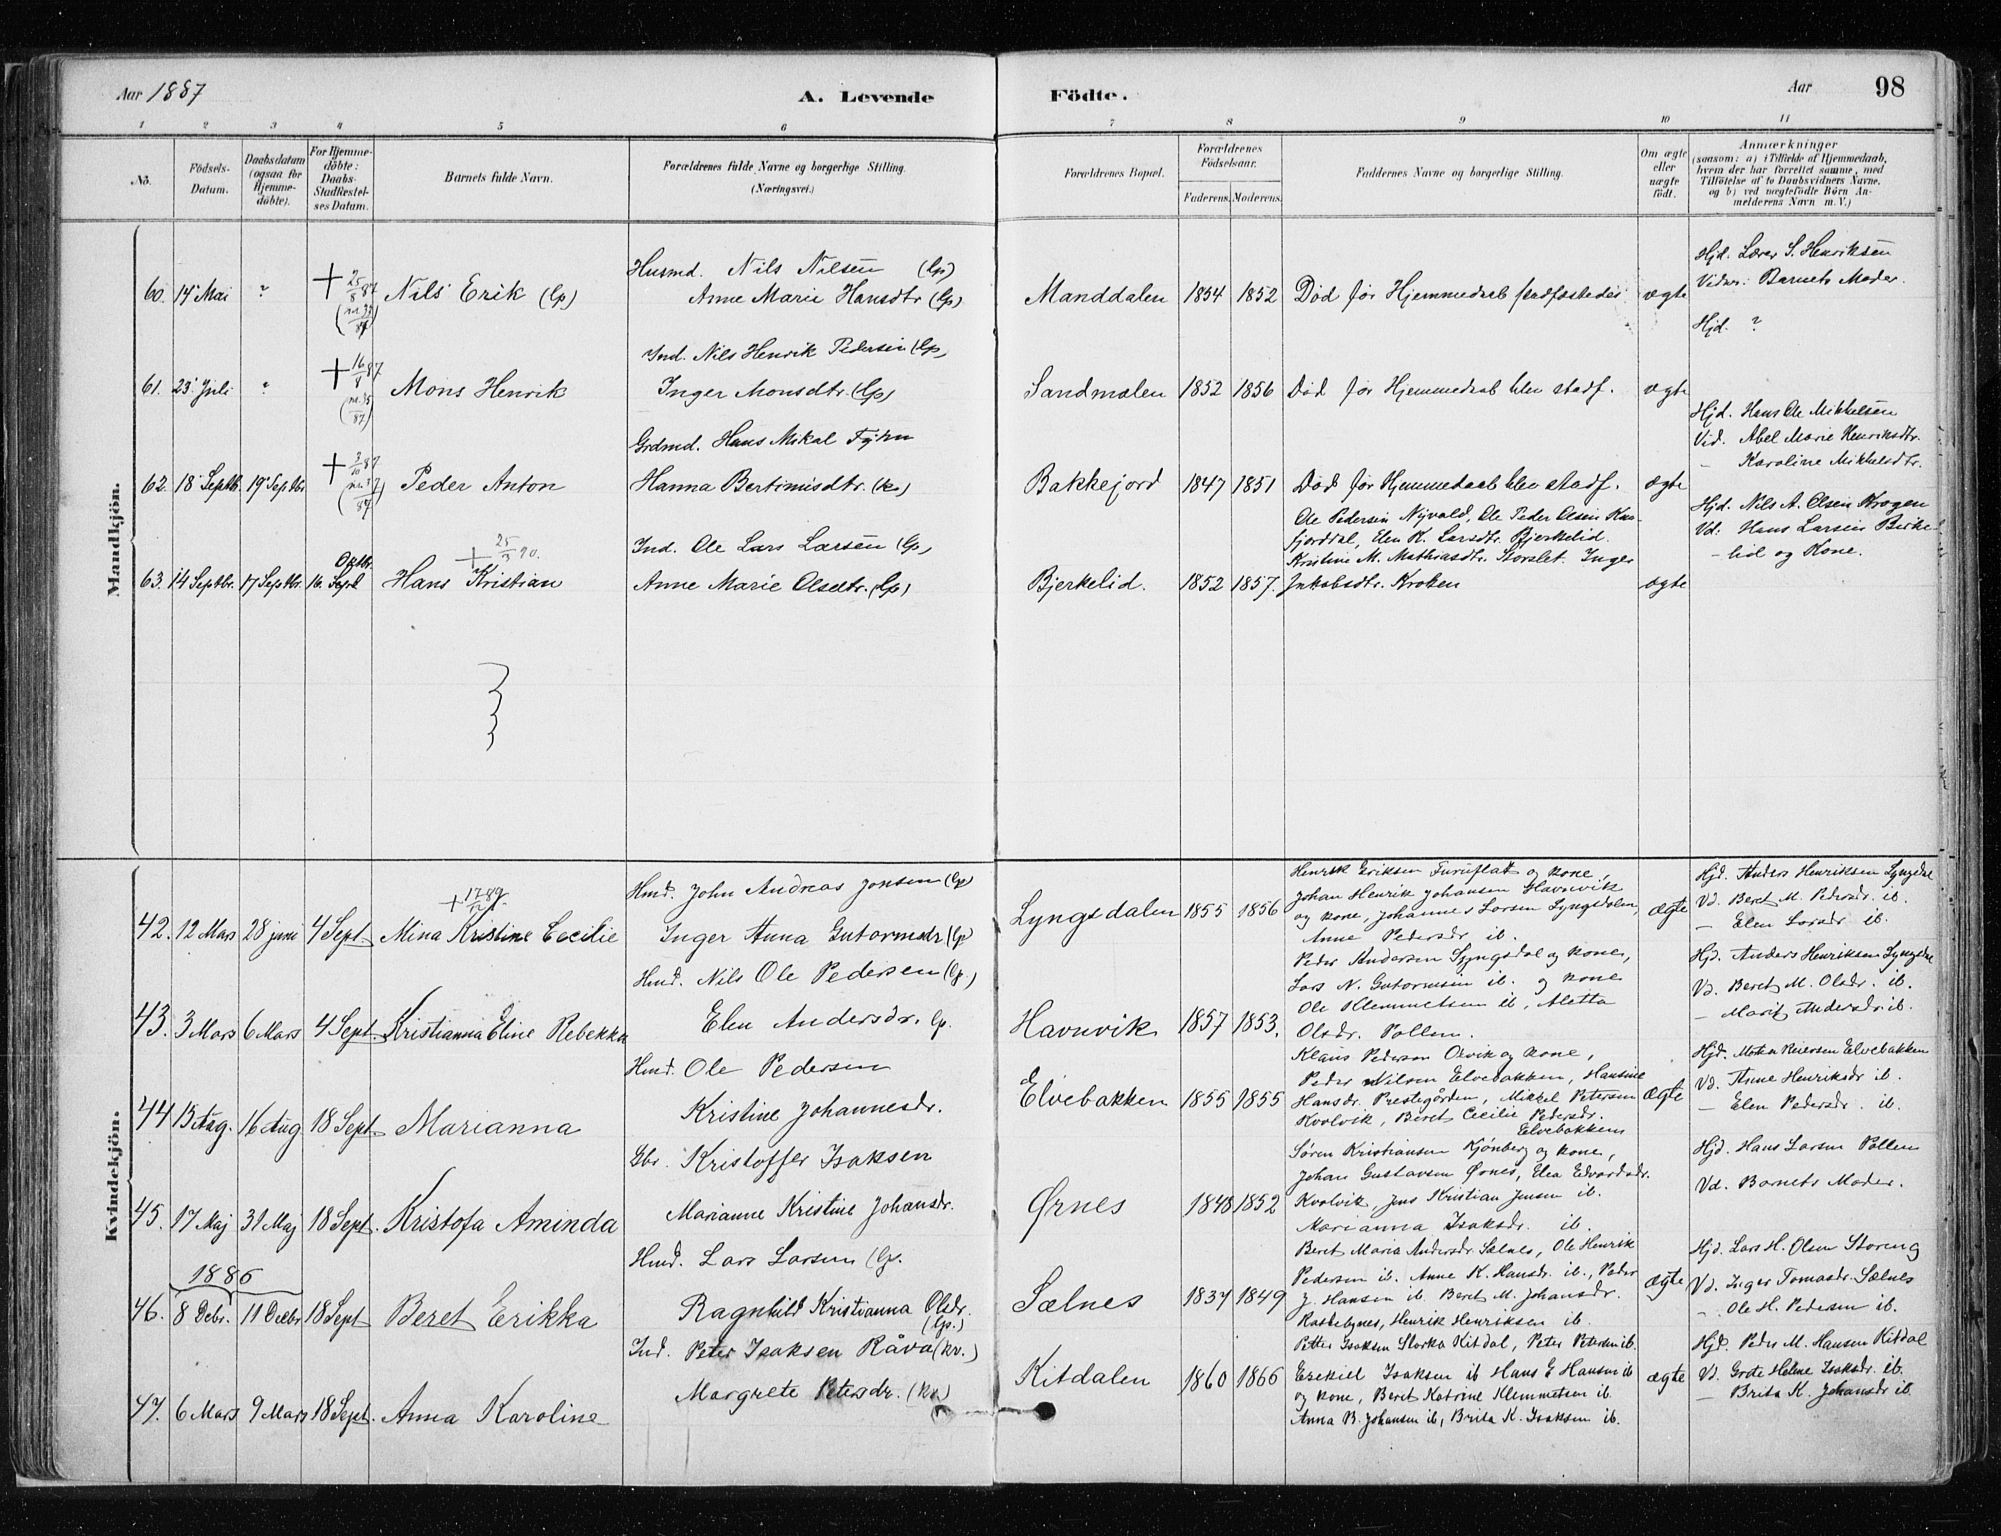 Aar 1887
A. Levende
Födte.
Aar
98
1 2 3 4 5 6 7 8 9 10 11
No.
Födsels-Datum.
Daabsdatum (ogsaa for Hjemmedöbte).
For Hjemmedöbte: Daabs-Stadfæstelses Datum.
Barnets fulde Navn.
Forældrenes fulde Navne og borgerlige Stilling. (Næringsvei.)
Forældrenes Bopæl.
Forældrenes Födselsaar.
Faderens. Moderens.
Faddernes Navne og borgerlige Stilling.
Om ægte eller uægte födt.
Anmærkninger
(saasom: a) i Tilfælde af Hjemmedaab, hvem der har forrettet samme, med Tilföielse af to Daabsvidners Navne, og b) ved uægtefödte Börn Anmelderens Navn m. V.)
Mandkjön.
60. 14 Mai ? + 25/8 87 Nils Erik (lp)
Husmd. Nils Nilsen (lp)
Anne Marie Hansdtr (lp)
Manddalen 1854 1852 Død før Hjemmedaab stadfæstedes ægte
Hjd. Lærer S. Henriksen
Vidner: Barnets Moder.
61. 23 Juli ? + 16/8 87 Mons Henrik
Ind. Nils Henrik Pedersen (lp)
Inger Monsdtr. (lp)
Sandmælen 1852 1856 Død før Hjemmedaab blev stadf. ægte
Hjd. ?
62. 18 Septbr. 19 Septbr + 3/10 87 Peder Anton
Grdmd. Hans Mikal
Hanna Bertimisdtr. (kv)
Bakkejord 1847 1851 Død før Hjemmedaab blev stadf. ægte
Hjd. Hans Ole Mikkelsen
Vid. Abel Marie Henriksdtr.
– Karoline Mikkelsdtr.
63. 14 Septbr. 17 Septbr. 16. Oktbr. Sept Hans Kristian
+ 25/3 90.
Ind. Ole Lars Larsen (lp)
Anne Marie Olsdtr. (lp)
Bjerkelid. 1852 1857.
Ole Pedersen Nyvold, Ole Peder Olsen Kaa-
fjorddal, Elen K. Larsdtr. Bjerkelid.
Kristine M. Mathiasdtr. Storslet. Inger
Jakobsdtr. Kroken
ægte
Hjd. Nils A. Olsen Krogen
Vd: Hans Larsen Birke-
lid og Kone.
Kvindekjön.
42. 12 Mars 28 juni 4 Sept. Mina Kristine Cecilie
Hmd. John Andreas Jonsen (lp)
Inger Anna Gutormsdr (lp)
Lyngsdalen 1855 1856
Henrik Eriksen Furuflat og kone,
Johan Henrik Johansen Havnvik
og kone, Johannes Larsen Lyngsdalen,
Anne Pedersdr ib.
ægte
Hjd. Anders Henriksen Lyngdal
Vd. Beret M. Pedersdr. ib.
– Elen Larsdr ib.
43. 3 Mars 6 Mars 4 Sept. Kristianna Eline Rebekka
Hmd. Nils Ole Pedersen (lp.)
Elen Andersdr. lp.
Havnvik 1857 1853.
Peder Andersen Lyngsdal og kone,
Lars N. Gutormsen ib. og kone
Ole Klemmetsen ib, Aletta
Olsdr. Pollen.
Hjd. Anders Henriksen Lyngdal
Vd. Beret M. Olsdr. ib.
– Marit Andersdr ib.
44 15 Aug. 16 Aug 18 Sept. Marianna
Hmd. Ole Pedersen
Kristine Johannesdr.
Elvebakken 1855 1855
Klaus Pederson Orvik og kone,
Peder Nilsen Elvebakken, Hansine
Hansdr. Prestegården, Mikkel Petersen
Kvalvik, Beret Cecilie Pedersdr.
Elvebakken
ægte
Hjd. Elvebakken
Vd. Anne Henriksdr ib.
– Elen Pedersdr. ib.
45. 17 Maj 31 Maj 18 Sept. Kristofa Aminda
Gbr. Kristoffer Isaksen
Marianne Kristine Johansdr.
Ørnes 1848 1852
Søren Kristiansen Kjønberg og kone,
Johan Gustavsen Ørnes, Elea Edvardsdr.
Kvalvik, Jens Kristian Jensen ib.
Marianna Isaksdr. ib.
Hjd. Hans Larsen Pollen
Vd. Barnets Moder.
1886
46. 8 Debr. 11 Decbr 18 Sept Beret Erikka
Hmd. Lars Larsen (lp.
Ragnhild Kristianna Olsdr. (lp.)
Sælnes 1837 1849
Beret Maria Andersdr. Sælnes, Ole Henrik
Pedersen ib. Anne K. Hansdr. ib., Peder
J. Hansen ib. Beret M. Johansdr.
Raskebynes, Henrik Henriksen ib.
ægte
Hjd. Lars H. Olsen Storeng
Vd. Inger Tomasdr. Sælnes
– Ole H. Pedersen ib.
47. 6 Mars 9 Mars 18 Sept. Anna Karoline
Ind. Peter Isaksen Råva (kv.)
Margrete Petersdr. (kv)
Kitdalen 1860 1866
Petter Isaksen Kitdal, Peter Petersen ib.
Ezekiel Isaksen ib Hans E Hansen ib
og kone, Berit Katrine Klemmetsen ib
Anna B. Johansen ib, Brita K. Isaksen ib.
ægte
Hjd. Peder M. Hansen Kitdal
Vd. Grete Helene Isaksdr. ib.
– Brita K. Johansdr ib.